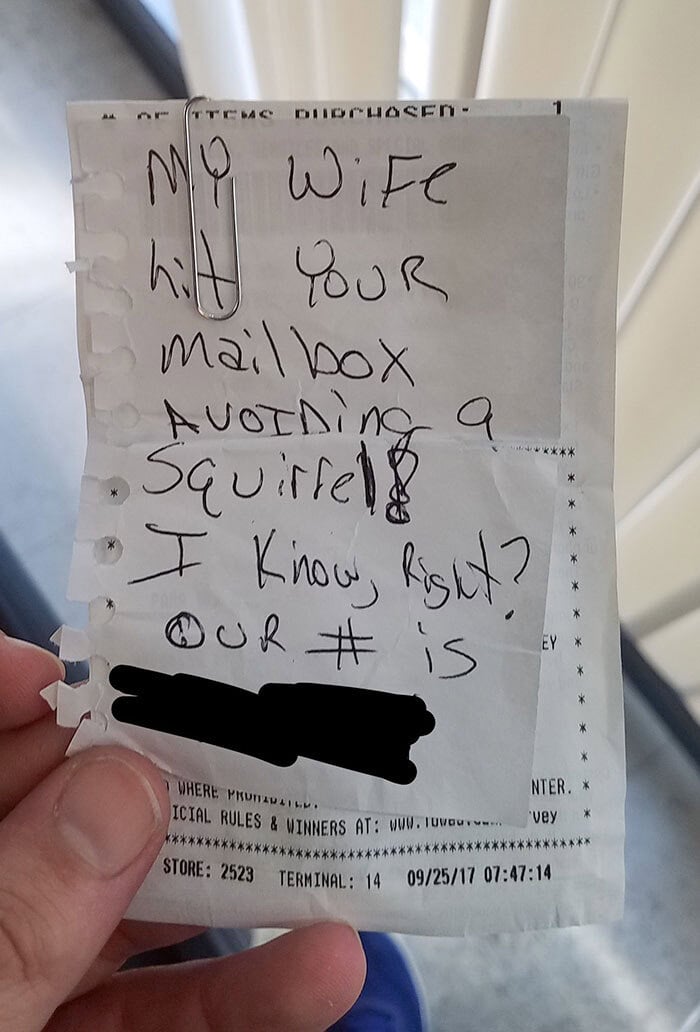 # OF ITEMS PURCHASED: 1
MY WiFe
hit YOUR
mailbox
AVOIDing a
Squirrel!
I Know, Right?
OUR # is
EY *
WHERE PROHIBITED. NTER. *
ICIAL RULES & WINNERS AT: www. vey *
****************************************
STORE: 2523 TERMINAL: 14 09/25/17 07:47:14